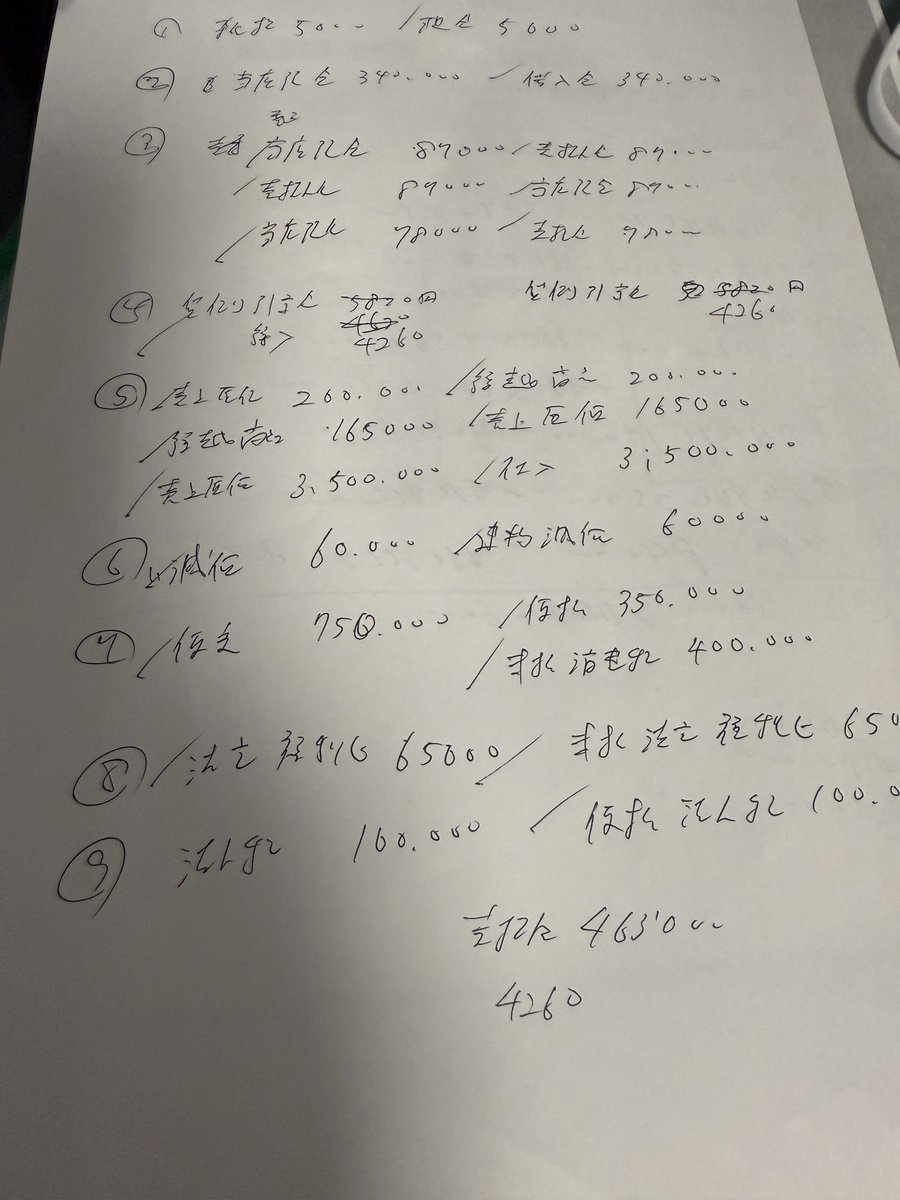 ① 雑損 5000 / 現金 5000
② 当座預金 340.000 / 借入金 340.000
③ 当座預金 87000 / 売掛金 87000
/ 売掛金 87000 当座預金 87000
/ 当座預金 78000 / 売掛金 78000
④ 貸倒引当金 5820円 貸倒引当金 5820円
4260
繰入 4260
⑤ / 売上原価 200.000 / 繰越商品 200.000
繰越商品 165000 / 売上原価 165000
/ 売上原価 3,500.000 / 仕入 3,500.000
⑥ 減価 60.000 建物減価 60000
⑦ / 仮受 750.000 / 仮払 350.000
/ 未払消費税 400.000
⑧ / 法定福利 65000 / 未払法定福利 650
⑨ 法人税 100.000 / 仮払法人税 100.0
売掛金 463000
4260